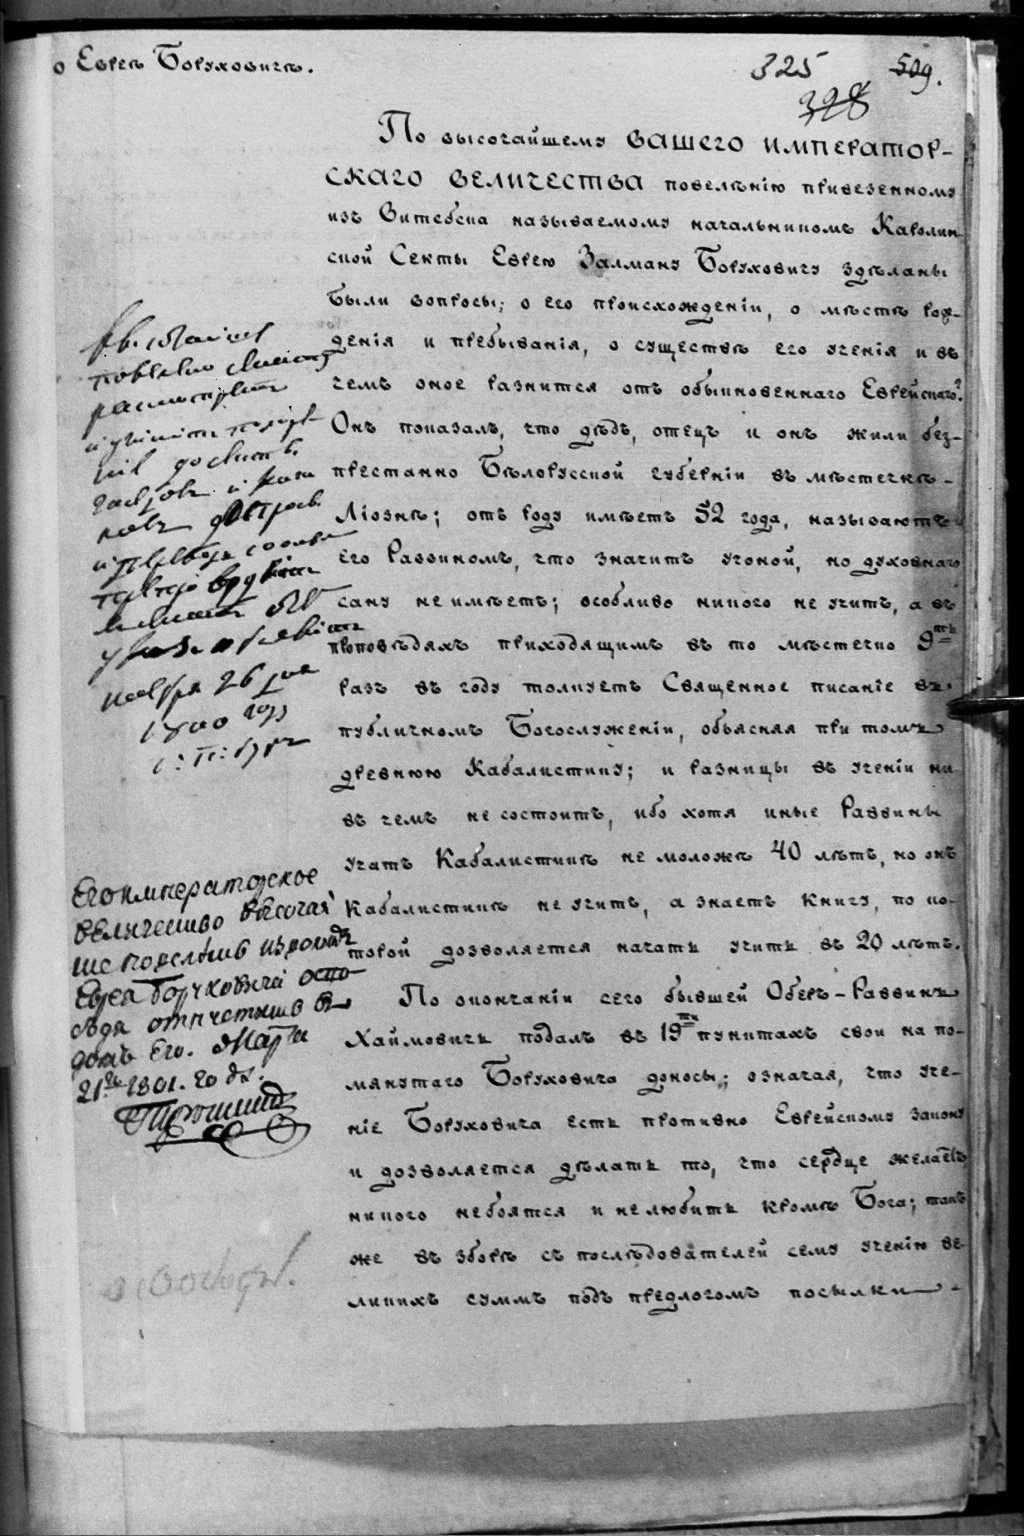 о Еврее Боруховиче.
325
509.
328
По высочайшему ВАШЕГО ИМПЕРАТОР-
СКАГО ВЕЛИЧЕСТВА повелѣнію привезенному
изъ Витебска называемому начальникомъ Каролин
ской Секты Еврею Залману Боруховичу здѣланы
были вопросы; о его происхожденіи, о мѣстѣ рож-
денія и пребыванія, о существѣ его ученія и въ
чемъ оное разнится отъ обыкновеннаго Еврейскаго?
Онъ показалъ, что дѣдъ, отецъ и онъ жили без-
престанно Бѣлорусской губерніи въ мѣстечкѣ-
Ліознѣ; отъ роду имѣетъ 52 года, называютъ
его Раввиномъ, что значитъ учоной, но духовнаго
сану не имѣетъ; особливо никого не учитъ, а въ
проповѣдяхъ приходящимъ въ то мѣстечко 9ть
разъ въ году толкуетъ Священное писаніе въ
публичномъ Богослуженіи, объясняя при томъ
древнюю Кабалистику; и разницы въ ученіи ни
въ чемъ не состоитъ, ибо хотя иные Раввины
учатъ Кабалистикѣ не моложѣ 40 лѣтъ, но онъ
Кабалистикѣ не учитъ, а знаетъ книгу, по ко-
торой дозволяется начать учить въ 20 лѣтъ.
По окончаніи сего бывшей Оберъ-Раввинъ
Хаймовичъ подалъ въ 19ти пунктахъ свои на по-
мянутаго Боруховича доносы; означая, что уче-
ніе Боруховича есть противно Еврейскому закону
и дозволяется дѣлать то, что сердце желаетъ
никого небоятся и нелюбить кромѣ Бога; такъ
же въ зборѣ съ послѣдователей сему ученію ве-
ликихъ суммъ подъ предлогомъ посылки-
повелено
ноября 26 дня
1800 году
Его императорское
величество высочай
ше повелѣлъ
Еврея Боруховича
Марта
21го 1801. го